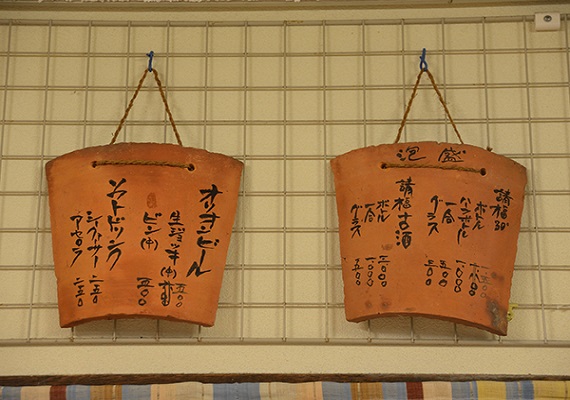 オリオンビール
生ジョッキ(中) 五〇〇
ビン(中) 五〇〇
ソフトドリンク
シークァーサー 二五〇
アセロラ 二五〇
泡盛
請福30°
ボトル
ハーフボトル 一〇〇〇
一合 五〇〇
グラス
請福古酒
ボトル
一合 一〇〇〇
グラス 五〇〇